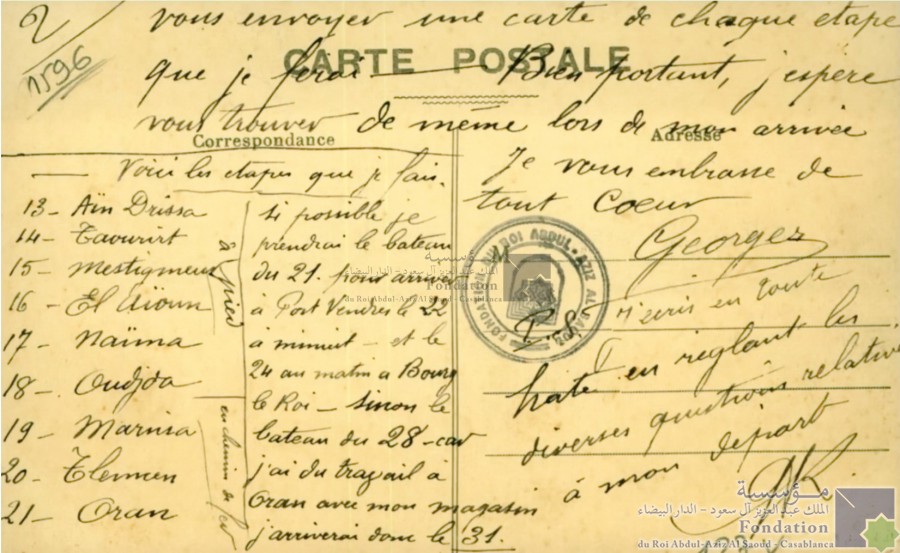 2/
1596
vous envoyer une carte de chaque etape
CARTE POSTALE
que je ferai — Bien portant, j'espère
vous trouver de même lors de mon arrivée
Correspondance
Adresse
— Voici les etapes que je fais.
13 - Aïn Drissa
14 - Taourirt
15 - Mestigmeur
16 - El Aïoun
17 - Naïma
18 - Oudjda
à pied
19 - Marnia
20 - Tlemcen
21 - Oran
en chemin de fer
si possible je
prendrai le bateau
du 21. pour arriver
à Port Vendres le 22
à minuit - et le
24 au matin a Bourg
le Roi - sinon le
bateau du 28 - car
j'ai du travail à
Oran avec mon magasin
j'arriverai donc le 31.
Je vous embrasse de
tout Coeur
Georges
P.S. J'écris en toute
hate en reglant les
diverses questions relative
à mon depart
FONDATION DU ROI ABDUL-AZIZ AL SAOUD
مؤسسة
الملك عبد العزيز آل سعود - الدار البيضاء
Fondation
du Roi Abdul-Aziz Al Saoud - Casablanca
مؤسسة
الملك عبد العزيز آل سعود - الدار البيضاء
Fondation
du Roi Abdul-Aziz Al Saoud - Casablanca